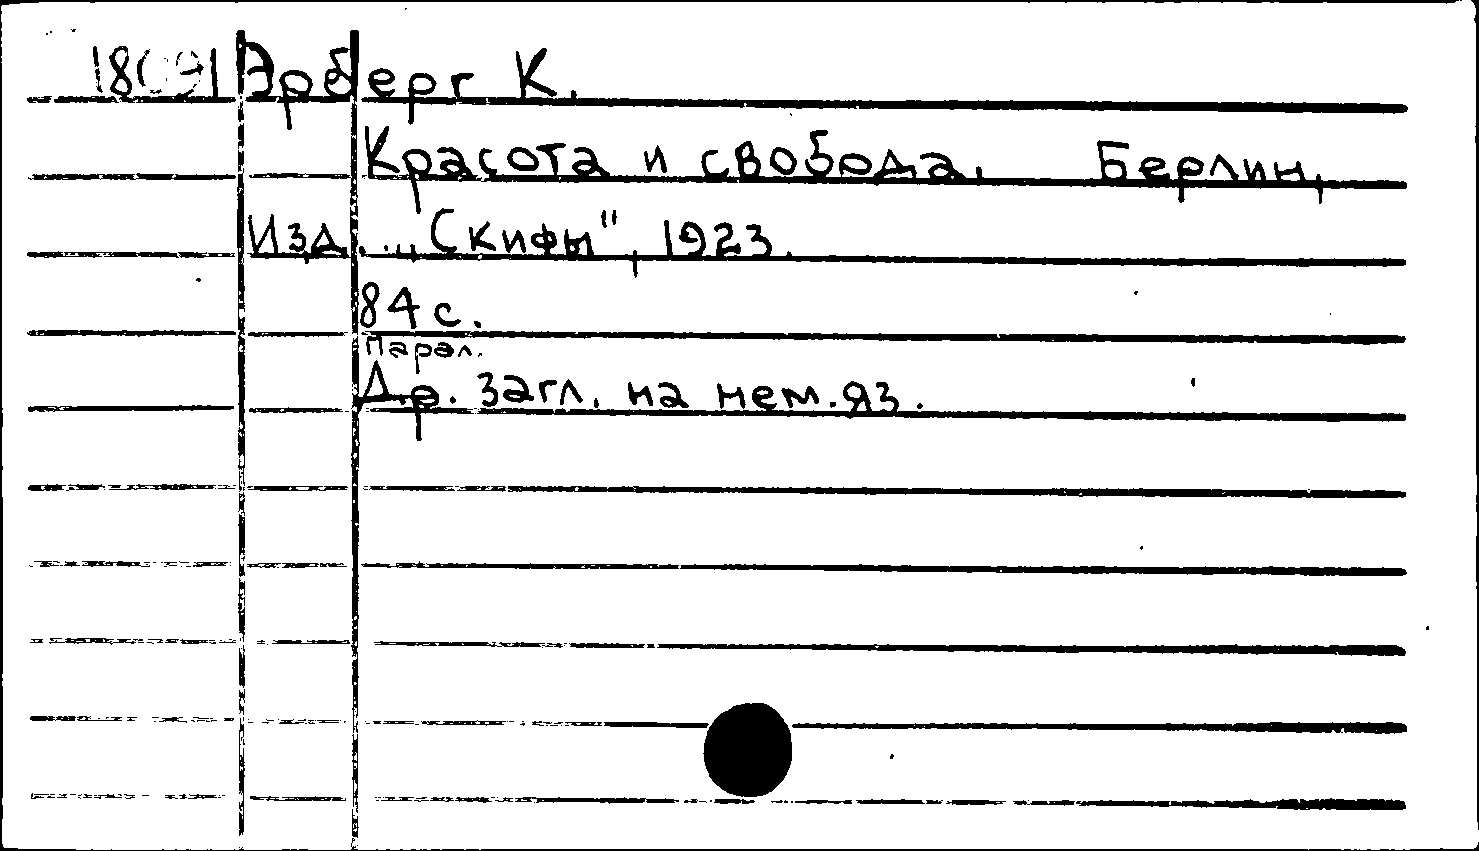 18091 Эрберг К.
Красота и свобода. Берлин,
Изд. „Скифы", 1923.
84 с.
Парал.
Др. загл. на нем. яз.